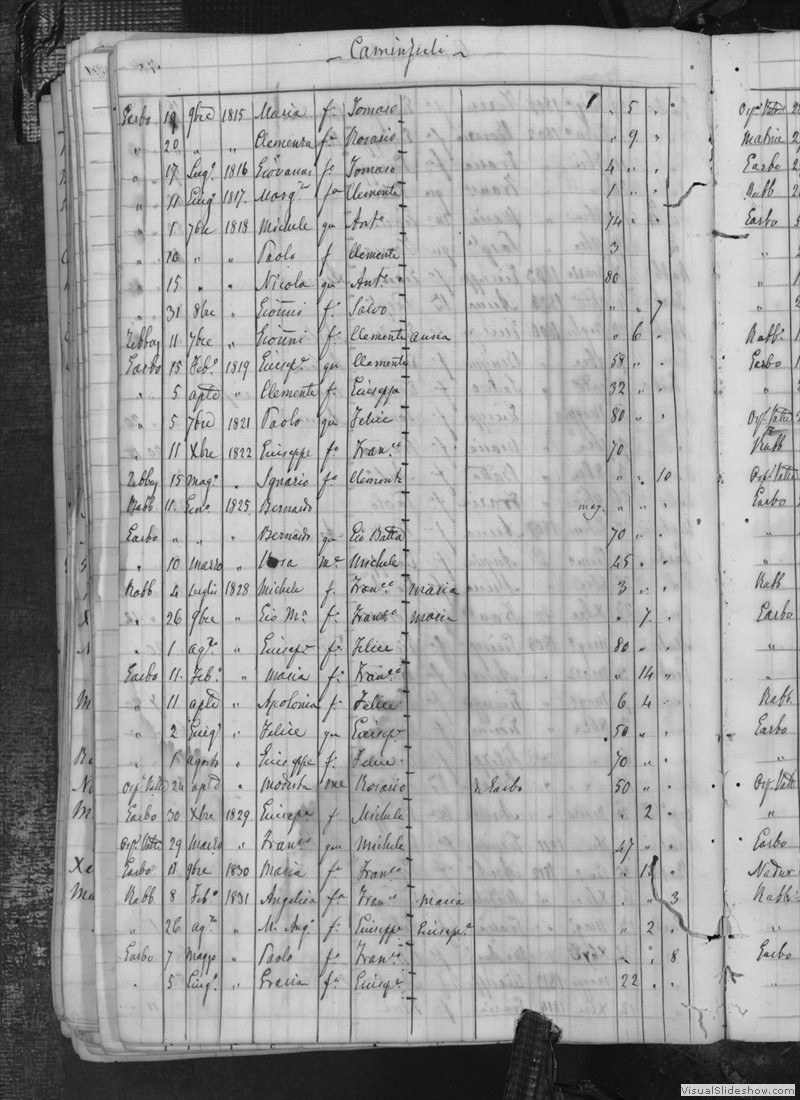 Caminfuli
Garbo 19 9bre 1815 Maria f. Tomaso 5
" 20 " " Clemenza fa Rosario 9
" 17 Lug. 1816 Giovanni f. Tomaso 4
" 11 Giug. 1817 Marg. fa Clemente 1
" 1 7bre 1818 Michele qu Anto. 74
" 10 " " Paolo f Clemente 3
" 15 " " Nicola qu Anto. 80
" 31 8bre " Gionni f. Salvo 7
Zebbug 11 7bre " Gionni f. Clemente anna 6
Garbo 15 Feb. 1819 Giusep. qu Clemente 58
" 5 aple " Clemente f. Giuseppe 32
" 5 7bre 1821 Paolo qu Felice 80
" 11 Xbre 1822 Giuseppe f. Franco 70
Zebbug 15 mag. " Ignazio f. Clemente 10
Rabb 11 Gen. 1825 Bernardo mag.
Garbo " " Bernardo qu Gio Batta 70
" 10 marzo " Rosa me Michele 45
Rabb 4 Luglio 1828 Michele f. Franco maria 3
" 26 9bre " Gio Ma f. Franco maria 7
" 1 ag. " Giusep. f. Felice 80
Garbo 11 Feb. " Maria f. Franco 14
" 11 aple " Apolonia f. Felice 6 4
" 2 Giug. " Felice qu Giusep. 50
" 1 agosto " Giuseppe f. Felice 70
Osp. Vitta 24 aple " Modesta me Rosario di Garbo 50
Garbo 30 Xbre 1829 Giusepe f. Michele 2
Osp. Vitta 29 Marzo " Franco qu Michele 47
Garbo 11 9bre 1830 Maria f. Franco 18
Rabb 8 Feb. 1831 Angelica fa Franco maria 3
" 26 ag. " M. Ang. f. Giuseppe Giusep. 2
Garbo 7 Maggio " Paolo f. Franco 8
" 5 Giug. " Grazia f. Giusep. 22
Osp. Vitta
Matrice
Garbo
Rabb
Garbo
Rabb.
Garbo
Osp. Vitta
Rabb
Osp. Vitta
Garbo
Rabb
Garbo
Rabb.
Garbo
Osp. Vitta
Garbo
Nadur
Rabb.
Garbo
VisualSlideshow.com